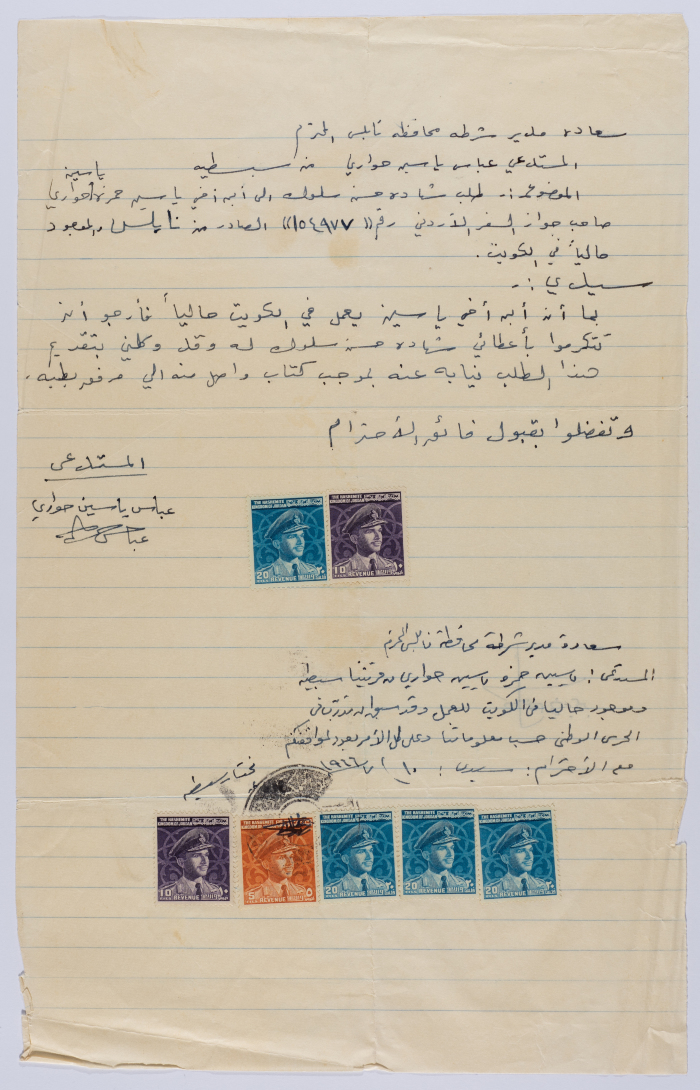 سعادة مدير شرطة محافظة نابلس المحترم
المستدعي عباس ياسين حواري من سبسطيه
ياسين
الموضوع :- طلب شهادة حسن سلوك الى ابن أخي ياسين حمزة حواري
صاحب جواز السفر الأردني رقم "١٥٤٩٧٧" الصادر من نابلس والموجود
حالياً في الكويت .
سيدي :-
بما أن ابن أخي ياسين يعمل في الكويت حالياً فأرجو أن
تتكرموا بأعطائي شهادة حسن سلوك له وقد وكلني بتقديم
هذا الطلب نيابه عنه بموجب كتاب واصل منه الي مرفق بطيه .
وتفضلوا بقبول فائق الأحترام
المستدعي
عباس ياسين حواري
عباس
THE HASHEMITE KINGDOM OF JORDAN
20 REVENUE ٢٠
THE HASHEMITE KINGDOM OF JORDAN
10 REVENUE ١٠
سعادة مدير شرطة محافظة نابلس المحترم
المستدعي : ياسين حمزه ياسين حواري من قريتنا سبسطيه
وموجود حاليا في الكويت للعمل وقد سبق ان تدرب في
الحرس الوطني حسب معلوماتنا وعلى كل الأمر يعود لموافقتكم
مع الأحترام : سيدي : ١٠ / / ١٩٦٦
مختار سبسطيه
THE HASHEMITE KINGDOM OF JORDAN
10 REVENUE ١٠
THE HASHEMITE KINGDOM OF JORDAN
5 REVENUE ٥
THE HASHEMITE KINGDOM OF JORDAN
20 REVENUE ٢٠
THE HASHEMITE KINGDOM OF JORDAN
20 REVENUE ٢٠
THE HASHEMITE KINGDOM OF JORDAN
20 REVENUE ٢٠